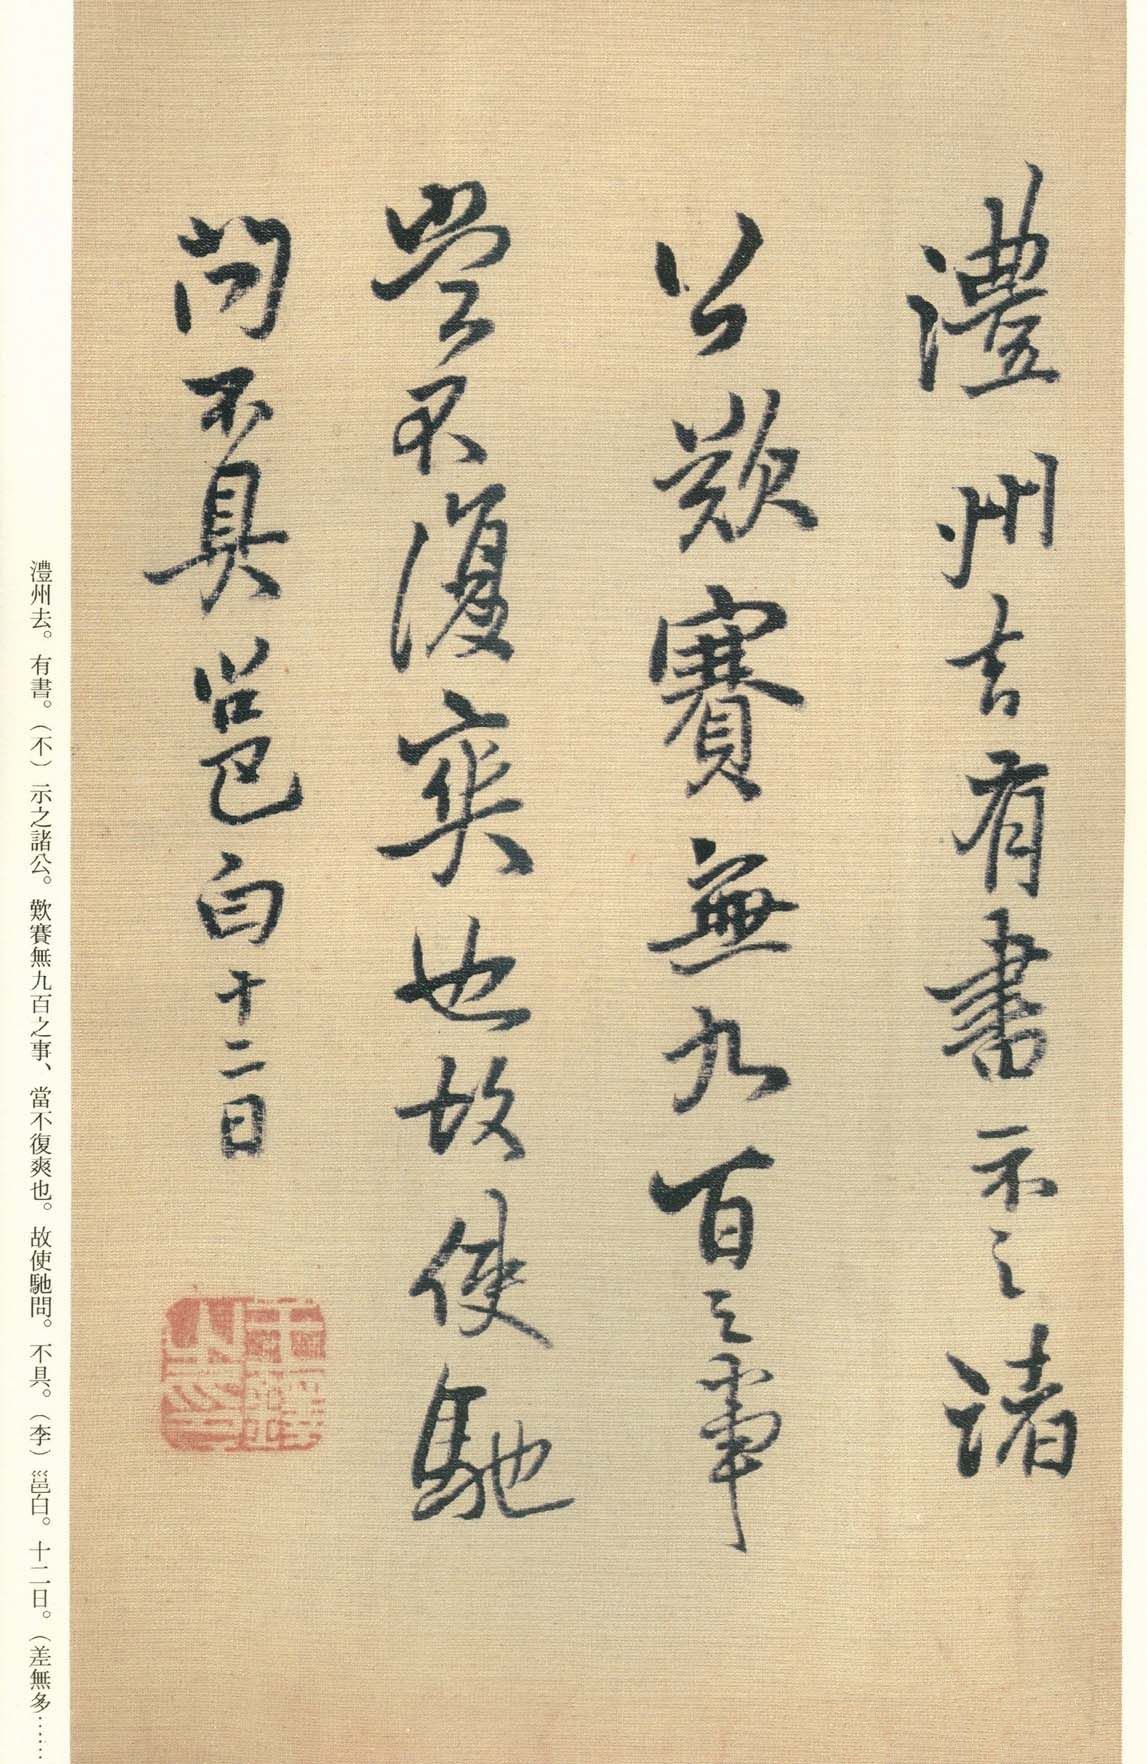 澧州去有書示之諸
公歎賽無九百之事
當不復爽也故使馳
問不具邕白十二日
澧州去。有書。（不）示之諸公。歎賽無九百之事、當不復爽也。故使馳問。不具。（李）邕白。十二日。（差無多……